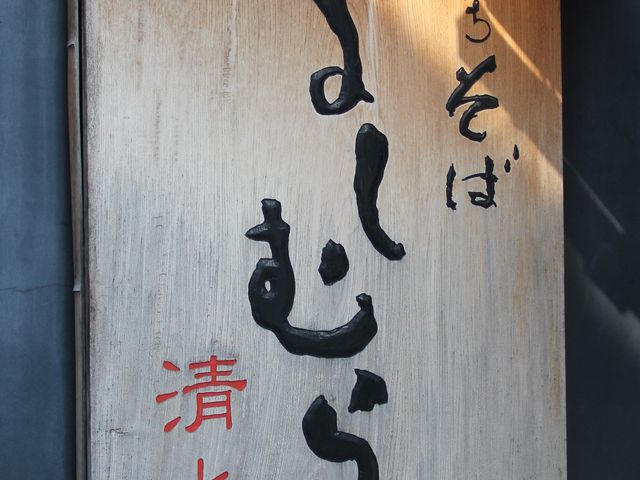 ちそば
よしむら
清